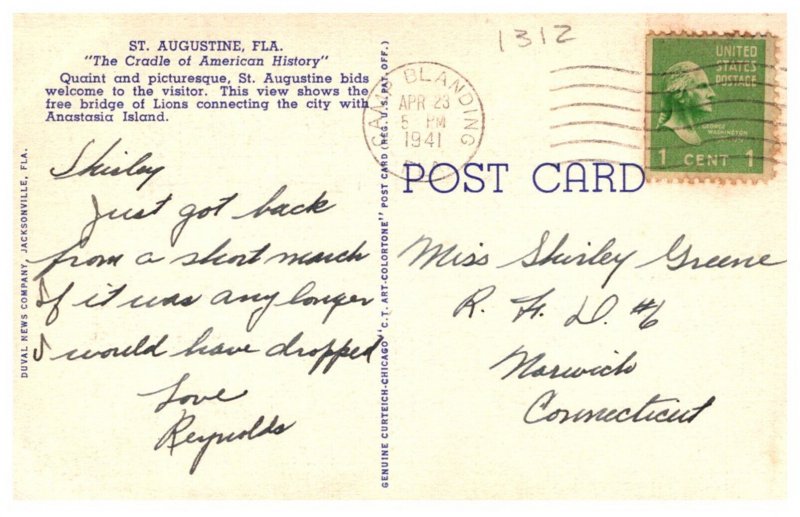 1312
ST. AUGUSTINE, FLA.
"The Cradle of American History"
Quaint and picturesque, St. Augustine bids
welcome to the visitor. This view shows the
free bridge of Lions connecting the city with
Anastasia Island.
CAMP BLANDING
APR 23
5 PM
1941
UNITED
STATES
POSTAGE
GEORGE
WASHINGTON
1 CENT 1
POST CARD
Shirley
Just got back
from a short march
If it was any longer
I would have dropped
Love
Reynolds
Miss Shirley Greene
R. F. D. #6
Norwich
Connecticut
DUVAL NEWS COMPANY, JACKSONVILLE, FLA.
GENUINE CURTEICH-CHICAGO "C.T. ART-COLORTONE" POST CARD (REG. U.S. PAT. OFF.)